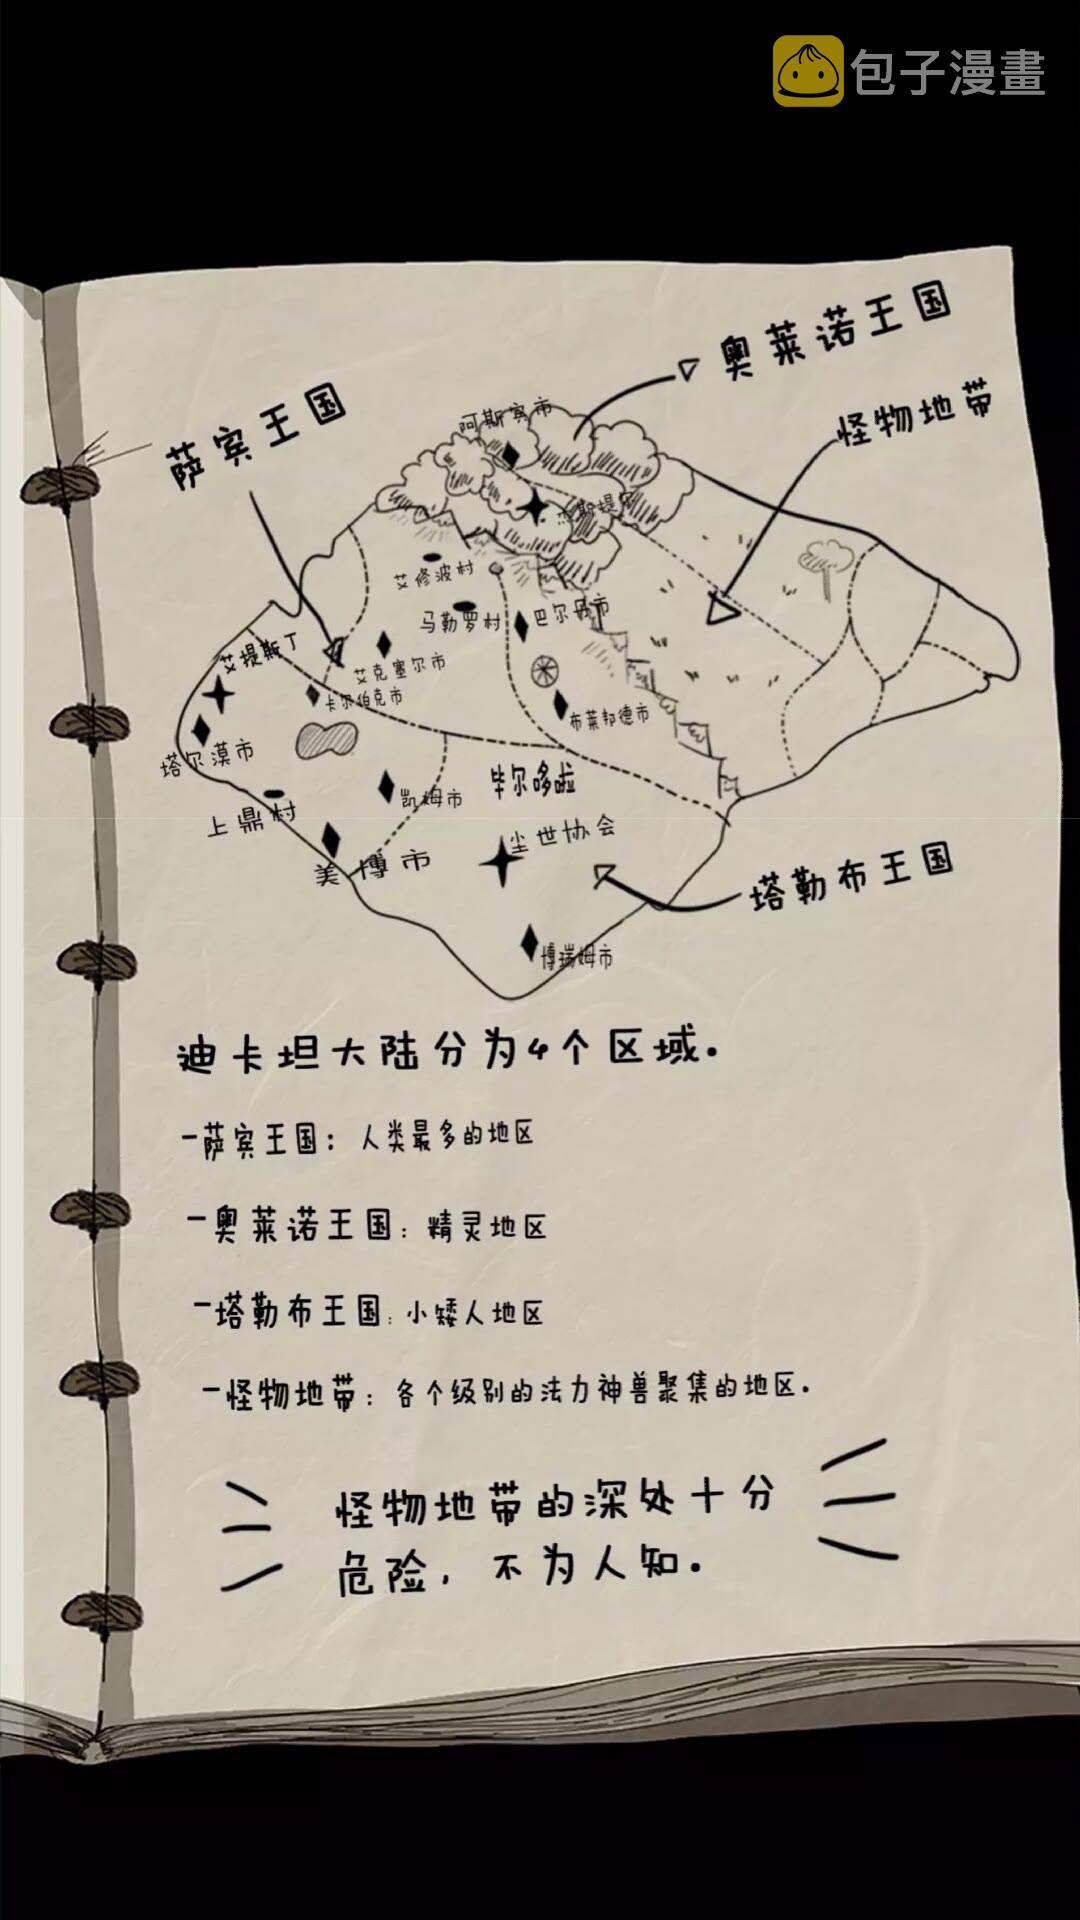 包子漫畫
奥莱诺王国
怪物地带
萨宾王国
阿斯宾市
杰斯提
艾修波村
马勒罗村
巴尔丹市
艾提斯丁
艾克塞尔市
卡尔伯克市
布莱邦德市
塔尔漠市
毕尔哆啦
凯姆市
上鼎村
尘世协会
美博市
塔勒布王国
博瑞姆市
迪卡坦大陆分为4个区域.
-萨宾王国: 人类最多的地区
-奥莱诺王国: 精灵地区
-塔勒布王国: 小矮人地区
-怪物地带: 各个级别的法力神兽聚集的地区.
怪物地带的深处十分
危险, 不为人知.